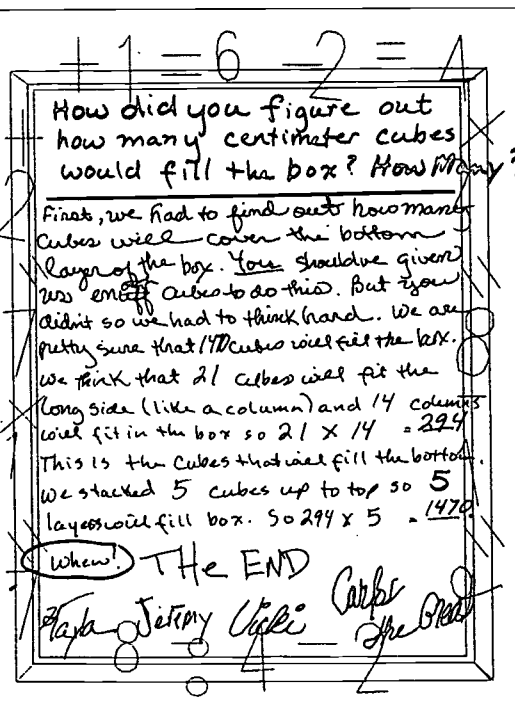 + 1 = 6 - 2 = 4
How did you figure out
how many centimeter cubes
would fill the box? How Many?
First, we had to find out how many
cubes will cover the bottom
layer of the box. You should've given
us enuff cubes to do this. But you
didnt so we had to think hard. We are
pretty sure that 1470 cubes will fill the box.
We think that 21 cubes will fit the
long side (like a column) and 14 columns
will fit in the box so 21 X 14 = 294
This is the cubes that will fill the bottom.
We stacked 5 cubes up to top so 5
layers will fill box. So 294 x 5 = 1470
Whew! THe END
Kayla Jeremy Vicki Carlos
The Great
8 ÷ 4 = 2